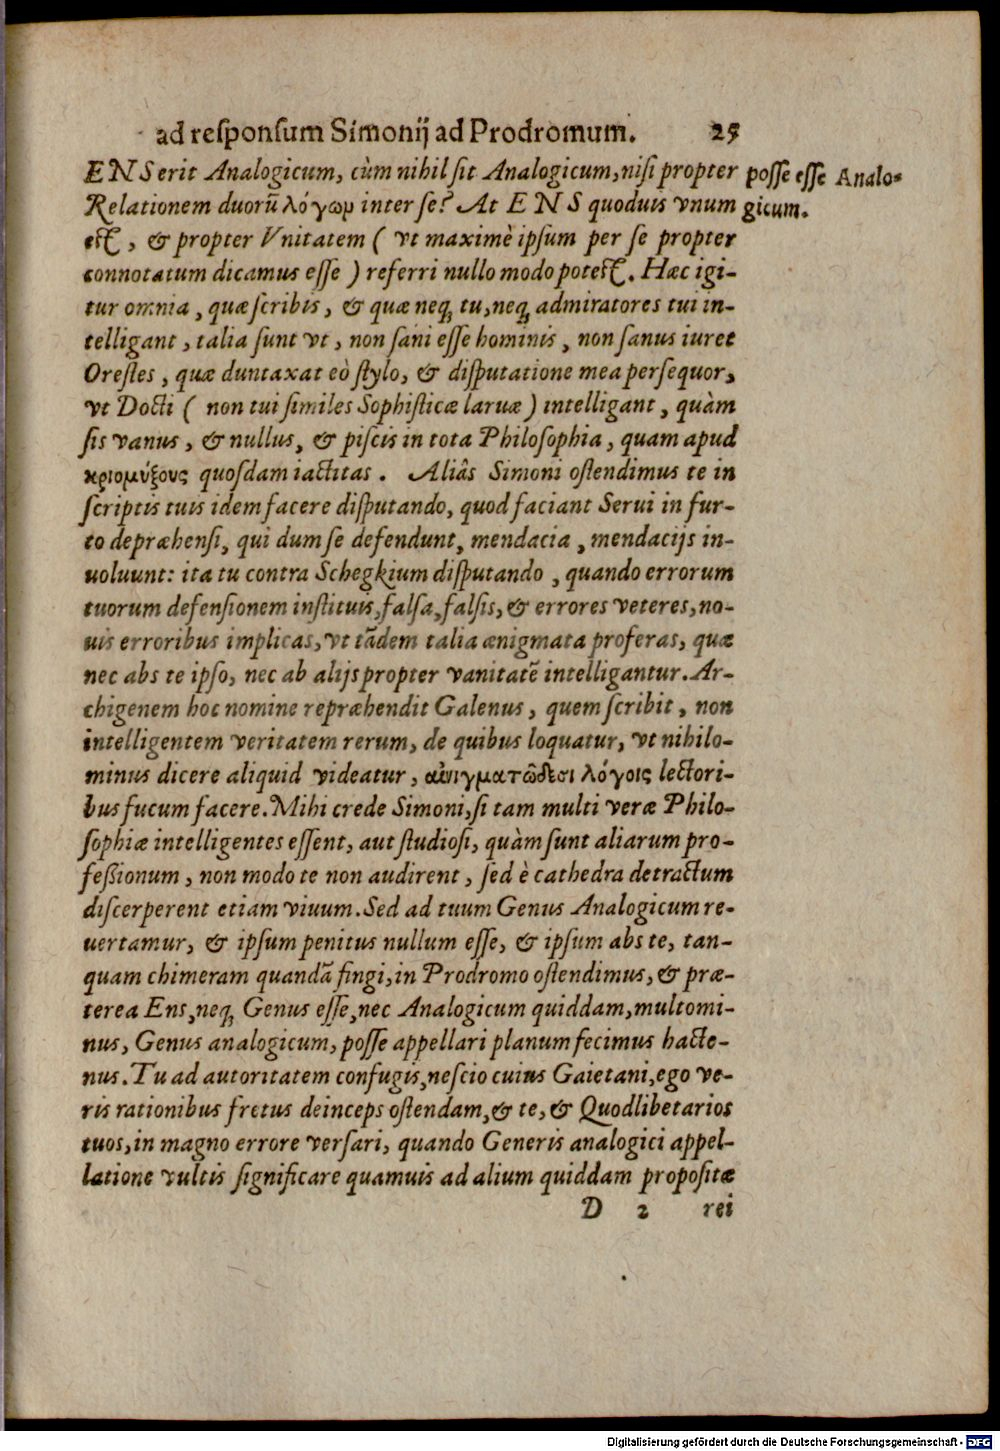 ad reſponſum Simonij ad Prodromum. 25
ENS erit Analogicum, cùm nihil ſit Analogicum, niſi propter
Relationem duorũ λόγωμ inter ſe? At ENS quoduis vnum
eſt, & propter Vnitatem ( vt maximè ipſum per ſe propter
connotatum dicamus eſſe ) referri nullo modo poteſt. Hæc igi-
tur omnia, quæ ſcribis, & quæ neq; tu, neq; admiratores tui in-
telligant, talia ſunt vt, non ſani eſſe hominis, non ſanus iuret
Oreſtes, quæ duntaxat eò ſtylo, & diſputatione mea perſequor,
vt Docti ( non tui ſimiles Sophiſticæ laruæ ) intelligant, quàm
ſis vanus, & nullus, & piſcis in tota Philoſophia, quam apud
κριομύξους quoſdam iactitas. Aliâs Simoni oſtendimus te in
ſcriptis tuis idem facere diſputando, quod faciant Serui in fur-
to depræhenſi, qui dum ſe defendunt, mendacia, mendacijs in-
uoluunt: ita tu contra Schegkium diſputando, quando errorum
tuorum defenſionem inſtituis, falſa, falſis, & errores veteres, no-
uis erroribus implicas, vt tãdem talia ænigmata proferas, quæ
nec abs te ipſo, nec ab alijs propter vanitatẽ intelligantur. Ar-
chigenem hoc nomine repræhendit Galenus, quem ſcribit, non
intelligentem veritatem rerum, de quibus loquatur, vt nihilo-
minus dicere aliquid videatur, αἰνιγματώδεσι λόγοις lectori-
bus fucum facere. Mihi crede Simoni, ſi tam multi veræ Philo-
ſophiæ intelligentes eſſent, aut ſtudioſi, quàm ſunt aliarum pro-
feßionum, non modo te non audirent, ſed è cathedra detractum
diſcerperent etiam viuum. Sed ad tuum Genus Analogicum re-
uertamur, & ipſum penitus nullum eſſe, & ipſum abs te, tan-
quam chimeram quandã fingi, in Prodromo oſtendimus, & præ-
terea Ens, neq; Genus eſſe, nec Analogicum quiddam, multomi-
nus, Genus analogicum, poſſe appellari planum fecimus hacte-
nus. Tu ad autoritatem confugis, neſcio cuius Gaietani, ego ve-
ris rationibus fretus deinceps oſtendam, & te, & Quodlibetarios
tuos, in magno errore verſari, quando Generis analogici appel-
latione vultis ſignificare quamuis ad alium quiddam propoſitæ
D 2 rei
poſſe eſſe Analo-
gicum.
Digitalisierung gefördert durch die Deutsche Forschungsgemeinschaft - DFG